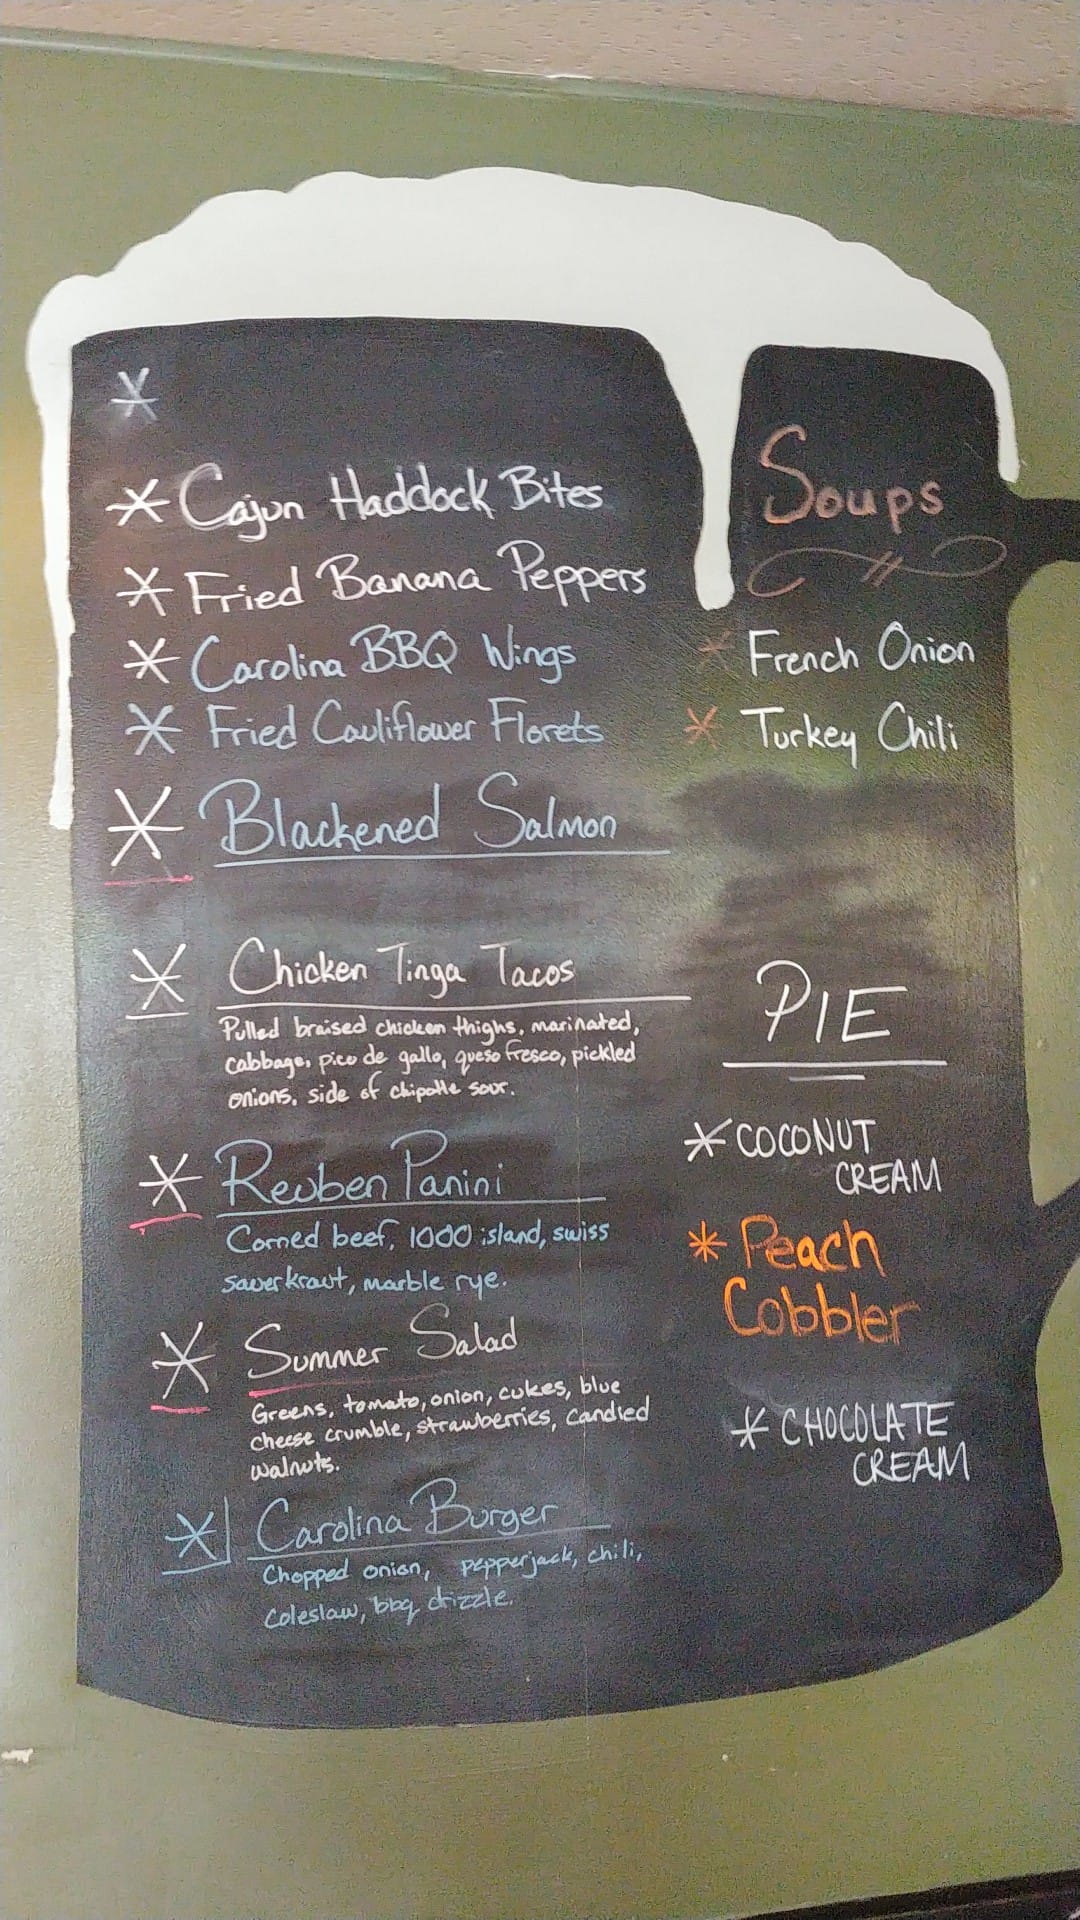 * Cajun Haddock Bites
* Fried Banana Peppers
* Carolina BBQ Wings
* Fried Cauliflower Florets
* Blackened Salmon
* Chicken Tinga Tacos
Pulled braised chicken thighs, marinated,
cabbage, pico de gallo, queso fresco, pickled
onions, side of chipotle sour.
* Reuben Panini
Corned beef, 1000 island, swiss
sauerkraut, marble rye.
* Summer Salad
Greens, tomato, onion, cukes, blue
cheese crumble, strawberries, candied
walnuts.
* Carolina Burger
Chopped onion, pepperjack, chili,
coleslaw, bbq drizzle.
Soups
* French Onion
* Turkey Chili
PIE
* COCONUT
CREAM
* Peach
Cobbler
* CHOCOLATE
CREAM